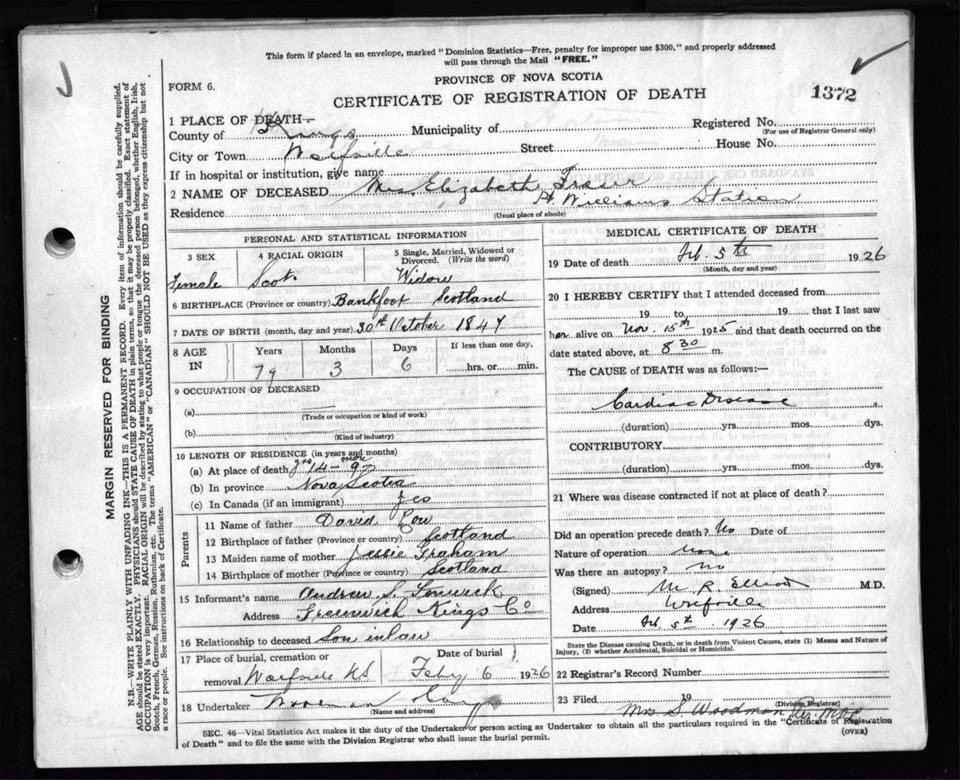 This form if placed in an envelope, marked "Dominion Statistics—Free, penalty for improper use $300," and properly addressed
will pass through the Mail "FREE."
PROVINCE OF NOVA SCOTIA
FORM 6.
CERTIFICATE OF REGISTRATION OF DEATH
1372
1 PLACE OF DEATH—
County of Kings Municipality of Registered No.
(For use of Registrar General only)
City or Town Wolfville Street House No.
If in hospital or institution, give name
2 NAME OF DECEASED Mrs Elizabeth Fraser
Residence Pt Williams Station
(Usual place of abode)
PERSONAL AND STATISTICAL INFORMATION
3 SEX 4 RACIAL ORIGIN 5 Single, Married, Widowed or
Divorced. (Write the word)
Female Scot Widow
6 BIRTHPLACE (Province or country) Bankfoot Scotland
7 DATE OF BIRTH (month, day and year) 30th October 1847
8 AGE IN Years Months Days If less than one day,
79 3 6 hrs. or min.
9 OCCUPATION OF DECEASED
(a)
(Trade or occupation or kind of work)
(b)
(Kind of industry)
10 LENGTH OF RESIDENCE (in years and months)
(a) At place of death
(b) In province Nova Scotia
(c) In Canada (if an immigrant) yes
Parents
11 Name of father David Low
12 Birthplace of father (Province or country) Scotland
13 Maiden name of mother Jessie Graham
14 Birthplace of mother (Province or country) Scotland
15 Informant's name Andrew S. Fenwick
Address Greenwich Kings Co
16 Relationship to deceased Son in law
17 Place of burial, cremation or Date of burial
removal Wolfville NS Feby 6 1926
18 Undertaker Woodman
(Name and address)
MEDICAL CERTIFICATE OF DEATH
19 Date of death Feb. 5th 1926
(Month, day and year)
20 I HEREBY CERTIFY that I attended deceased from
19 to 19 that I last saw
her alive on Nov. 15th 1925 and that death occurred on the
date stated above, at 8 30 m.
The CAUSE of DEATH was as follows:—
Cardiac Disease
(duration) yrs. mos. dys.
CONTRIBUTORY
(duration) yrs. mos. dys.
21 Where was disease contracted if not at place of death?
Did an operation precede death? No Date of
Nature of operation None
Was there an autopsy? no
(Signed) M. R. Elliott M.D.
Address Wolfville
Date Feb 5th 1926
State the Disease causing Death, or in death from Violent Causes, state (1) Means and Nature of
Injury, (2) whether Accidental, Suicidal or Homicidal.
22 Registrar's Record Number
23 Filed 19
(Division Registrar)
Mrs S Woodman
SEC. 46—Vital Statistics Act makes it the duty of the Undertaker or person acting as Undertaker to obtain all the particulars required in the "Certificate of Registration
of Death" and to file the same with the Division Registrar who shall issue the burial permit.
(OVER)
MARGIN RESERVED FOR BINDING
N.B.—WRITE PLAINLY WITH UNFADING INK—THIS IS A PERMANENT RECORD. Every item of information should be carefully supplied.
AGE should be stated EXACTLY. PHYSICIANS should STATE CAUSE OF DEATH in plain terms, so that it may be properly classified. Exact statement of
OCCUPATION is very important. RACIAL ORIGIN will be described by stating to what people or tongue the deceased person belonged, whether English, Irish,
Scotch, French, German, Russian, Ruthenian, etc. The terms "AMERICAN" or "CANADIAN" SHOULD NOT BE USED as they express citizenship but not
a race or people. See instructions on back of Certificate.